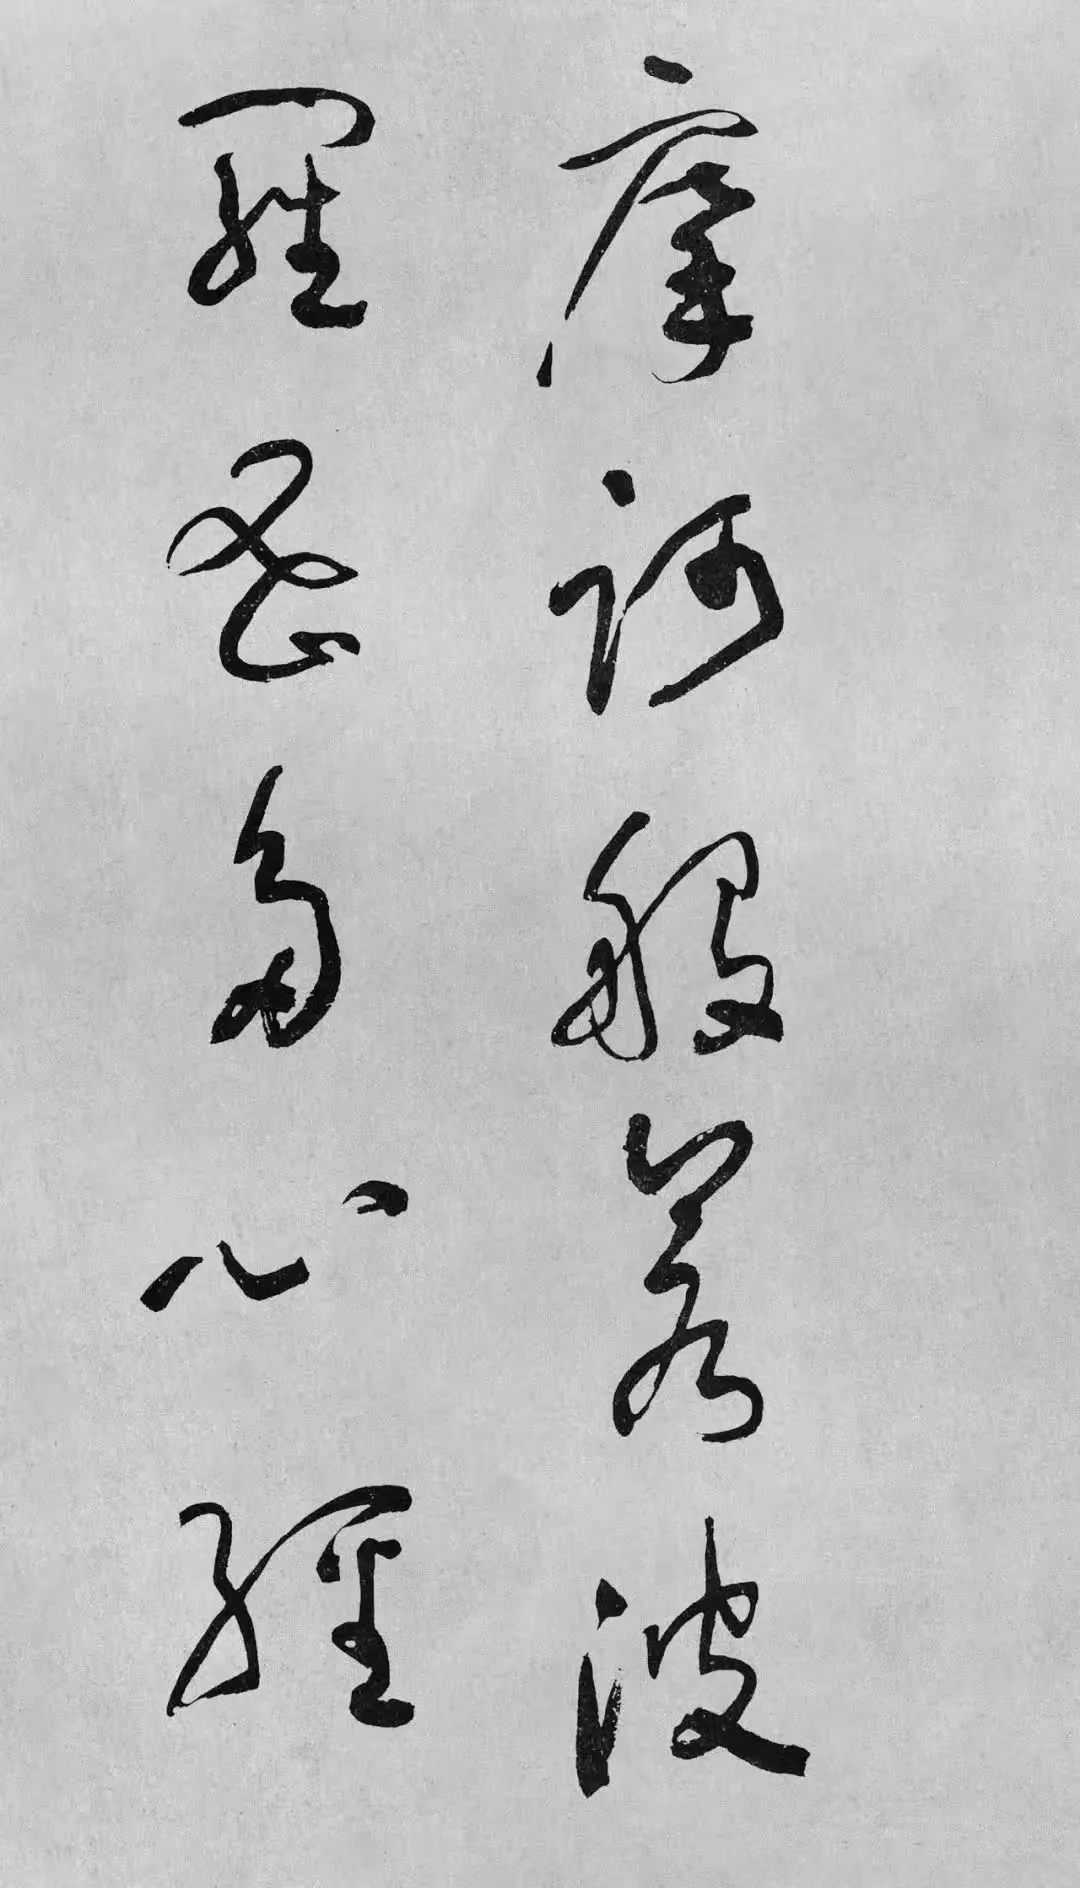 摩訶般若波
羅蜜多心經